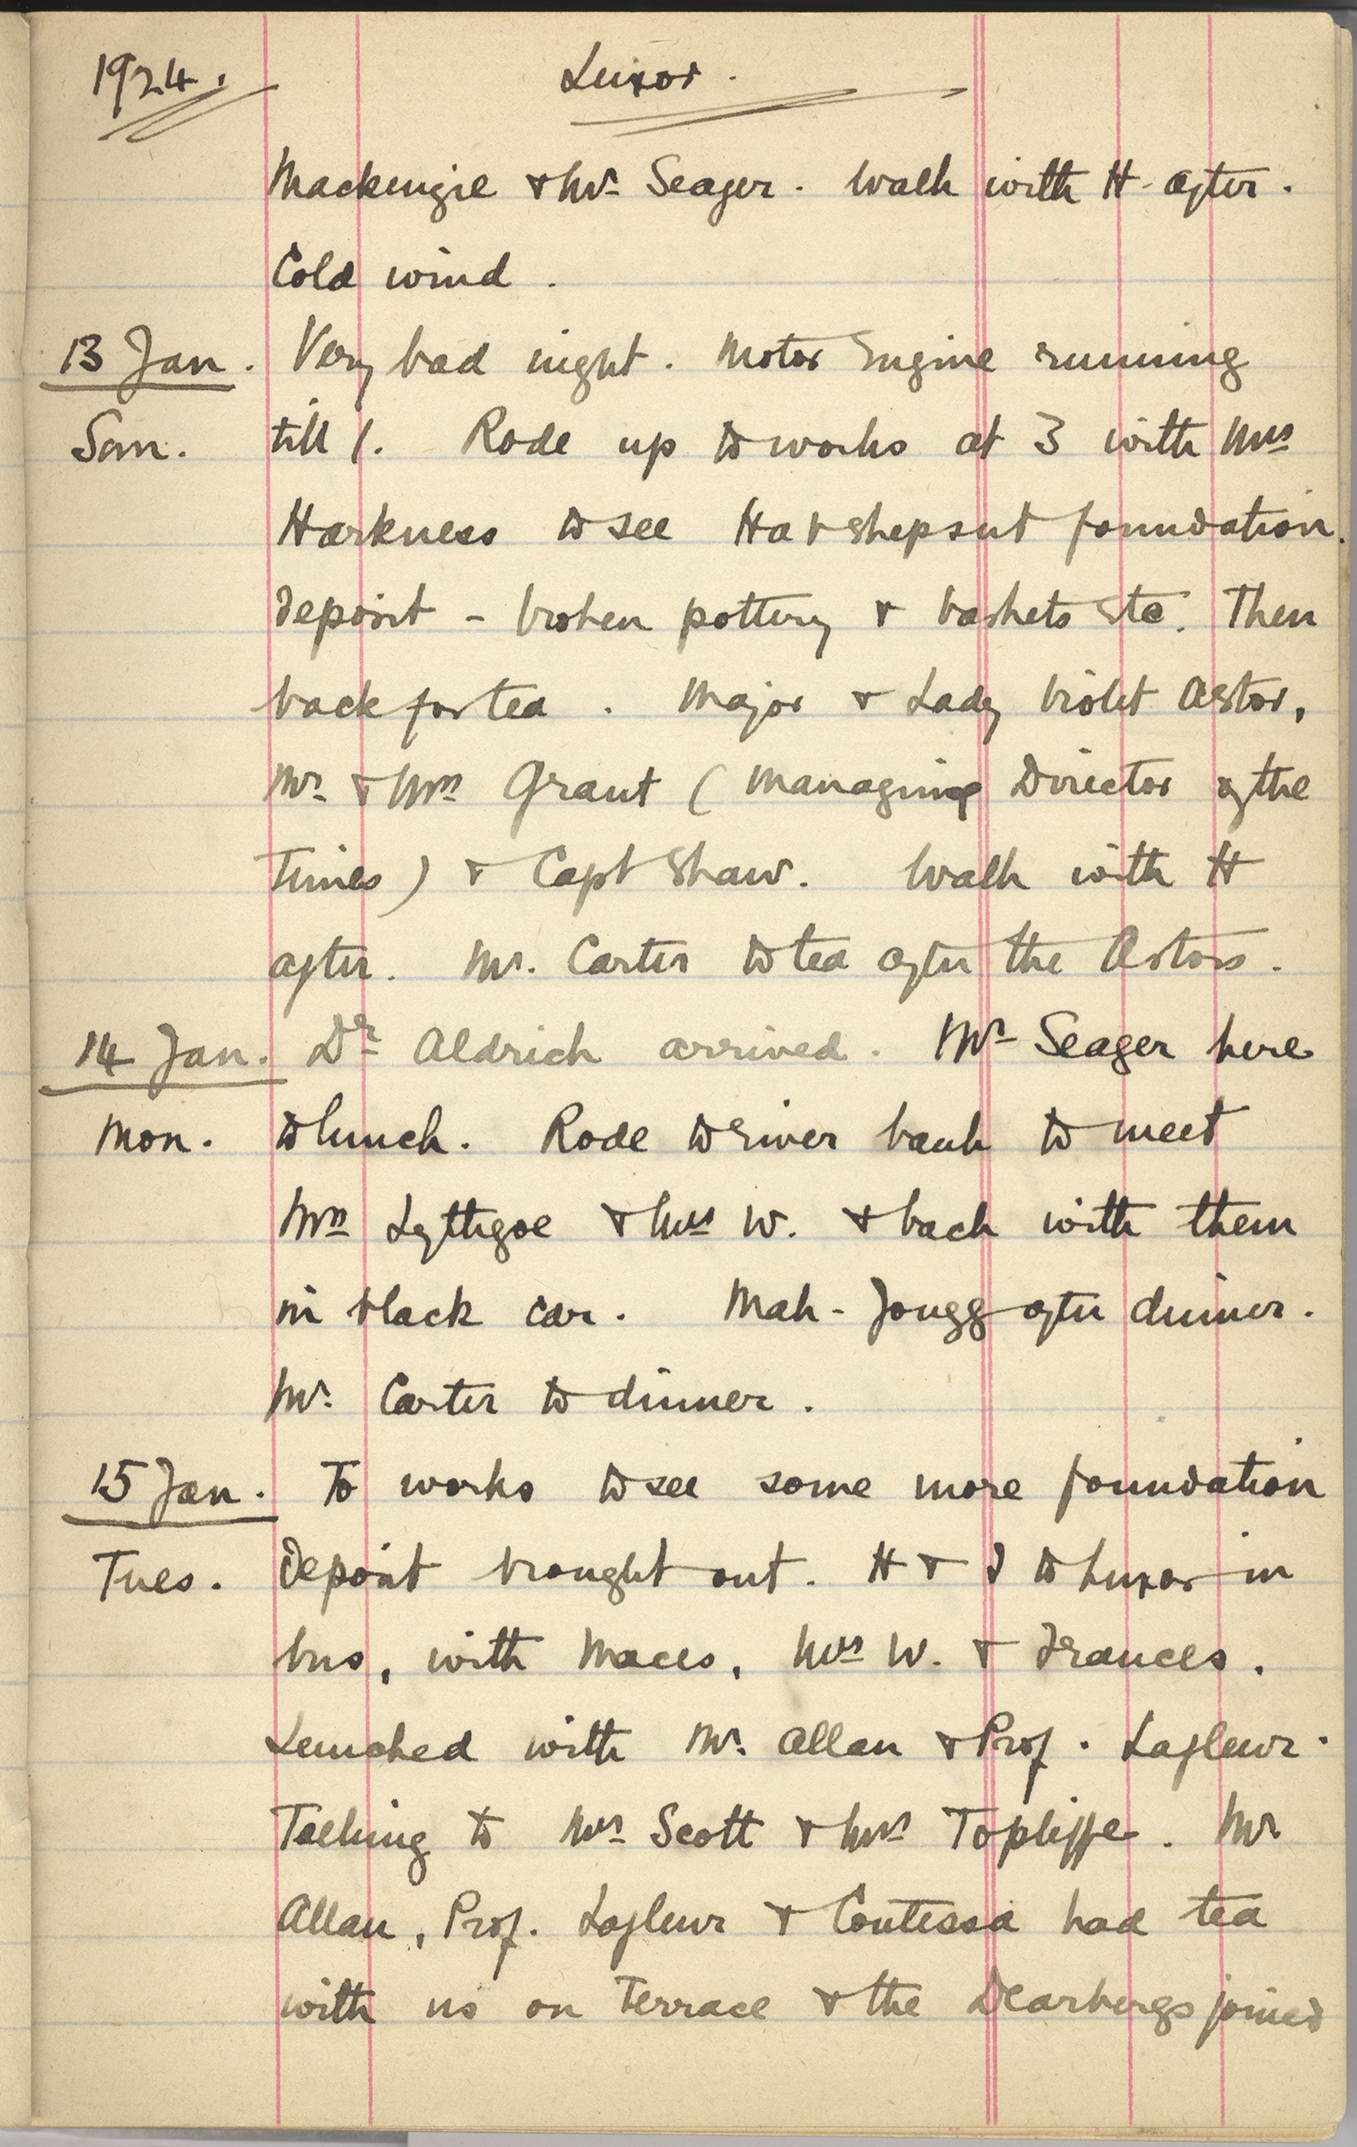 1924. Luxor.
Mackenzie & Mr Seager. Walk with H. after.
Cold wind.
13 Jan. Very bad night. Motor Engine running
Sun. till 1. Rode up to works at 3 with Mrs
Harkness to see Hatshepsut foundation
deposit - broken pottery & baskets etc. Then
back for tea. Major & Lady Violet Astor,
Mr & Mrs Grant (Managing Director of the
Times) & Capt Shaw. Walk with H
after. Mr. Carter to tea after the Astors.
14 Jan. Dr Aldrich arrived. Mr Seager here
Mon. to lunch. Rode to river bank to meet
Mrs Lythgoe & Mrs W. & back with them
in black car. Mah-Jongg after dinner.
Mr. Carter to dinner.
15 Jan. To works to see some more foundation
Tues. deposit brought out. H & I to Luxor in
bus, with Maces, Mrs W. & Frances.
Lunched with Mr. Allan & Prof. Lafleur.
Talking to Mrs Scott & Mrs Topliffe. Mr
Allan, Prof. Lafleur & Contessa had tea
with us on Terrace & the Dearbergs joined